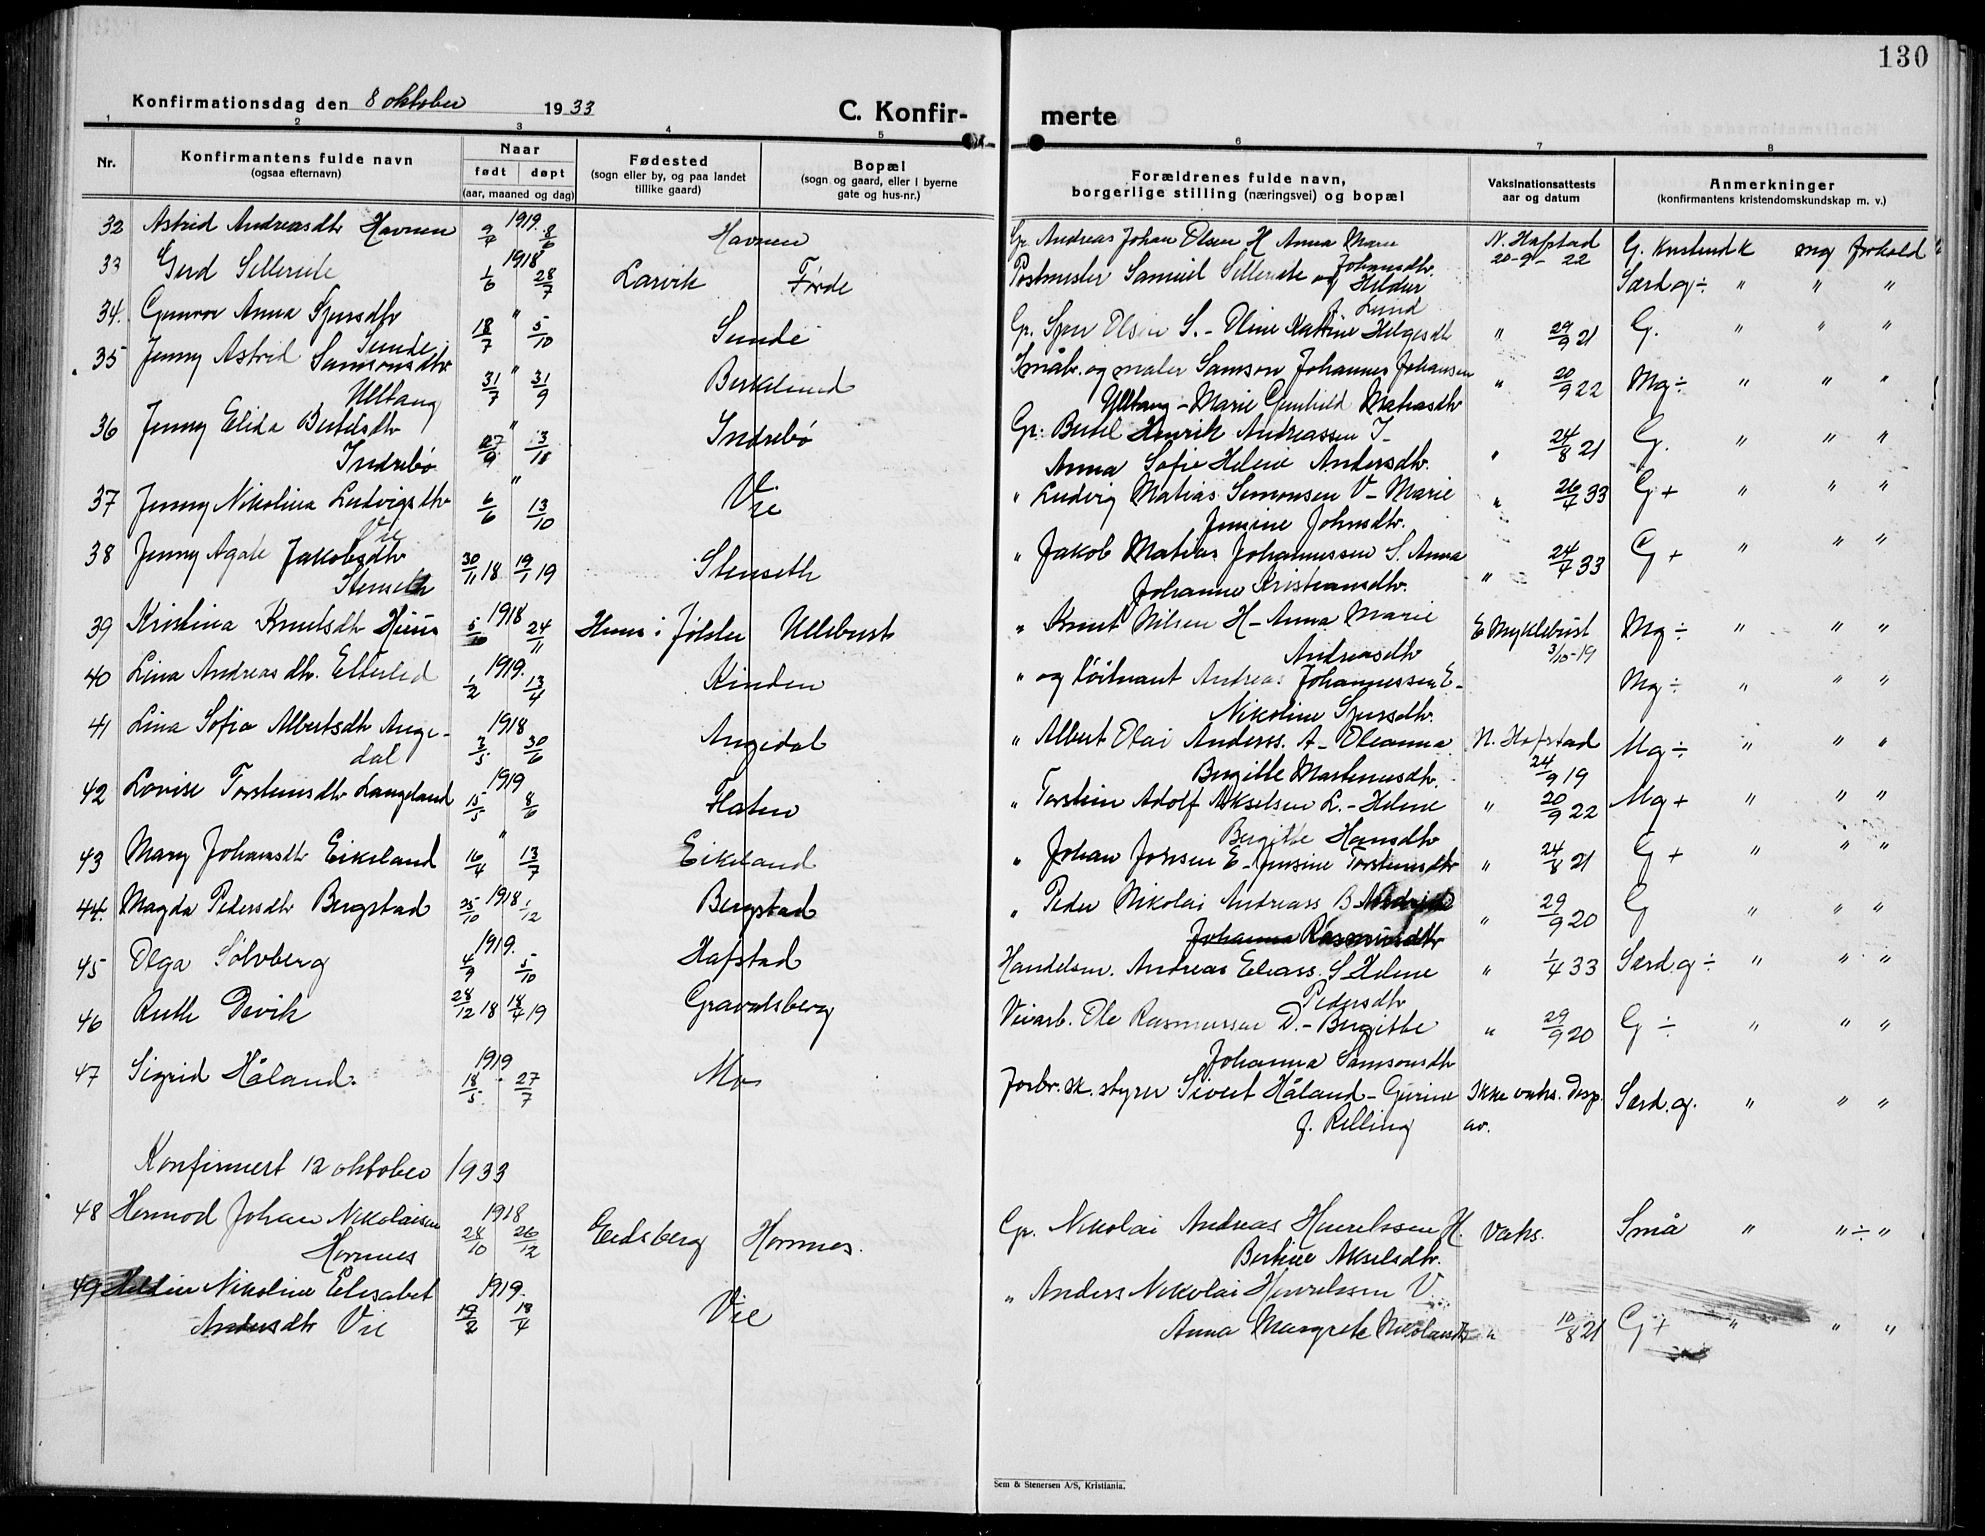 130
Konfirmationsdag den 8 oktober 1933
C. Konfir-
merte
1 2 3 4 5 6 7 8
Nr.
Konfirmantens fulde navn
(ogsaa efternavn)
Naar
født døpt
(aar, maaned og dag)
Fødested
(sogn eller by, og paa landet
tillike gaard)
Bopæl
(sogn og gaard, eller i byerne
gate og hus-nr.)
Forældrenes fulde navn,
borgerlige stilling (næringsvei) og bopæl
Vaksinationsattests
aar og datum
Anmerkninger
(konfirmantens kristendomskundskap m. v.)
32 Astrid Andreasdtr Havnen 9/4 1919 8/6 Havnen Gr. Andreas Johan Olsen H Anna Marie N. Hafstad G. Kristendk mg forhold
Johansdtr. 20-9-22
33 Gerd Sellereite 1/6 1918 28/7 Larvik Førde Postmester Samuel Sellereite og Hildur Særd.g ÷ " " "
J. Lund
34. Gunvor Anna Sjursdtr 18/7 " 5/10 Sunde Gr. Sjur Olsen S. - Oline Katrine Helgesdtr " 29/9 21 G. " " "
Sunde
35 Jenny Astrid Samsonsdtr 31/7 " 31/9 Berklund Småbr. og maler Samson Johannes Johansen " 20/9 22 Mg ÷ " " "
Ulltang Ylltang - Marie Gunhild Matiasdtr
36 Jenny Elida Bertelsdtr 27/9 " 13/10 Indrebø Gr. Bertel Henrik Andreassen I- " 24/8 21 G. " " "
Indrebø Anna Sofie Helene Andersdtr.
37 Jenny Nikolina Ludvigsdtr 6/6 " 13/10 Vie " Ludvig Matias Simonsen V - Marie " 26/4 33 G + " " "
Vie Jensine Johnsdtr.
38 Jenny Agate Jakobsdtr 30/11 18 19/1 19 Stenseth " Jakob Matias Johannessen S. Anna " 24/4 33 G + " " "
Stenseth Johanne Kristiansdtr.
39 Kristina Knutsdtr Huus 5/10 1918 24/11 Huus i Jølster Ullebust " Knut Nilsen H - Anna Marie E Myklebust Mg ÷ " " "
Andreasdtr 3/10-19
40 Lina Andreasdtr. Efterled 1/2 1919. 13/4 Kinden " og løitnant Andreas Johannessen E- Mg ÷ " " "
Nikoline Sjursdtr.
41 Lina Sofia Albertsdtr Ange- 3/5 1918 30/6 Angedal " Albert Olai Anderss. A - Oleanna N. Hafstad Mg ÷ " " "
dal Bergitte Martinusdtr. 24/9 19
42 Lovise Torsteinsdtr Langeland 15/5 1919 8/6 Flaten " Torstein Adolf Akselsen L. - Helene " 20/9 22 Mg + " " "
Bergitte Hansdtr
43 Mary Johansdtr Eikeland 16/4 " 13/7 Eikeland " Johan Jonsen E - Jensine Torsteinsdtr " 24/8 21 G + " " "
44. Magda Pedersdtr Bergstad 25/10 1918 1/12 Bergstad " Peder Nikolai Andreass B " 29/9 20 G " " "
Johanna Rasmusdtr
45 Olga Sølvberg 4/9 1919. 5/10 Hafstad Handelsm. Andreas Eliass. S Helene " 1/4 33 Særd.g ÷ " " "
Pedersdtr
46 Ruth Devik 28/12 18 18/4 19 Gravalsberg Veiarb. Ole Rasmussen D. - Bergitte " 29/9 20 G ÷ " " "
Johanna Samsonsdtr
47 Sigrid Håland. 18/5 1919 27/7 Mo Forbr. sk. styrer Sivert Håland - Gurine Ikke vaks. Disp. Særd. g. " " "
J. Relling av.
Konfirmert 12 oktober 1933
48 Hermod Johan Nikolaisen 28/10 1918 26/12 Eidsberg Hornnes. Gr. Nikolai Andreas Henrikssen H. Vaks. Små " " ÷ "
Hornnes Bertine Akselsdtr.
49 Nikoline Elisabet 19/2 1919. 13/4 Vie " Anders Nikolai Henrikssen V.
Andersdtr Vie Anna Margrete Nikolaisdtr " 10/8 21 G + " " "
Sem & Stenersen A/S, Kristiania.